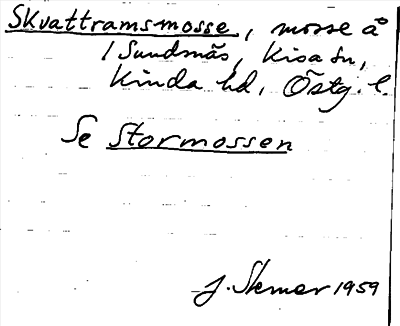 Skvattramsmosse, mosse å
1 Sundsnäs, Kisa sn,
Kinda hd, Östg. l.
Se Stormossen
J. Stemer 1959